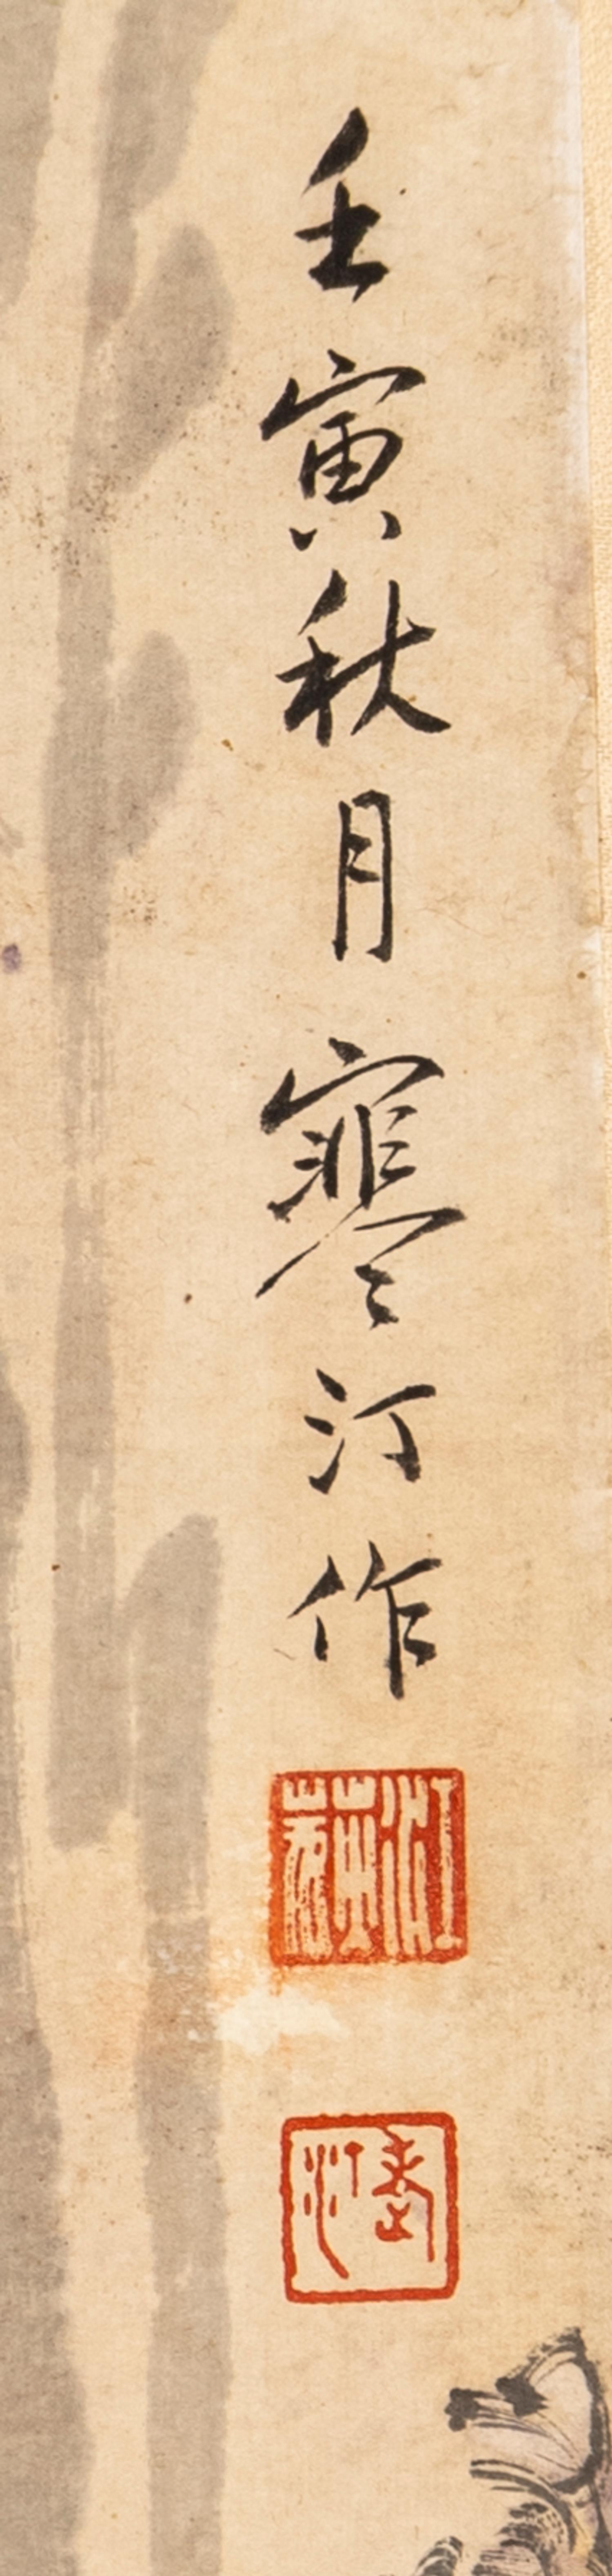 壬寅秋月寒汀作